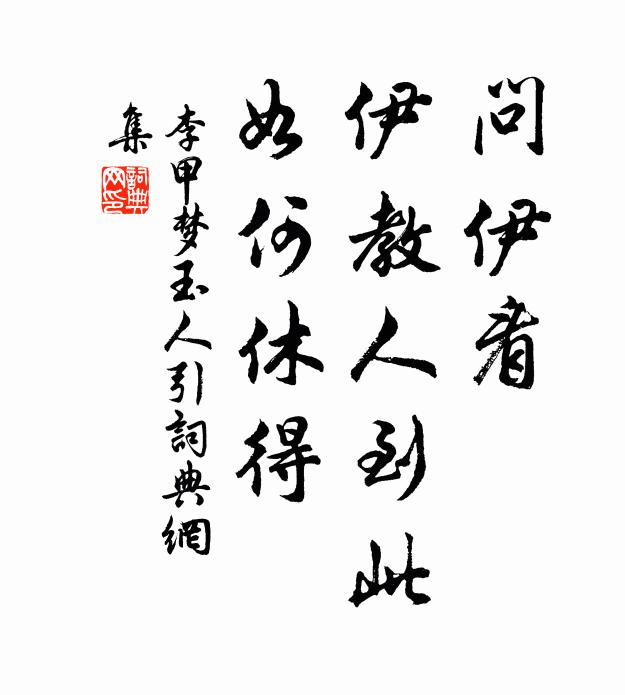 问伊看
伊教人到此
如何休得
李甲梦玉人引詞典網
集
詞典
网印